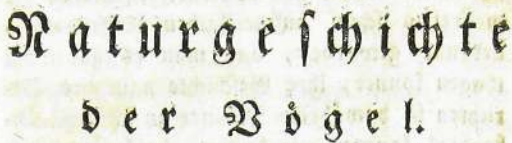 Naturgeſchichte
der Vögel.